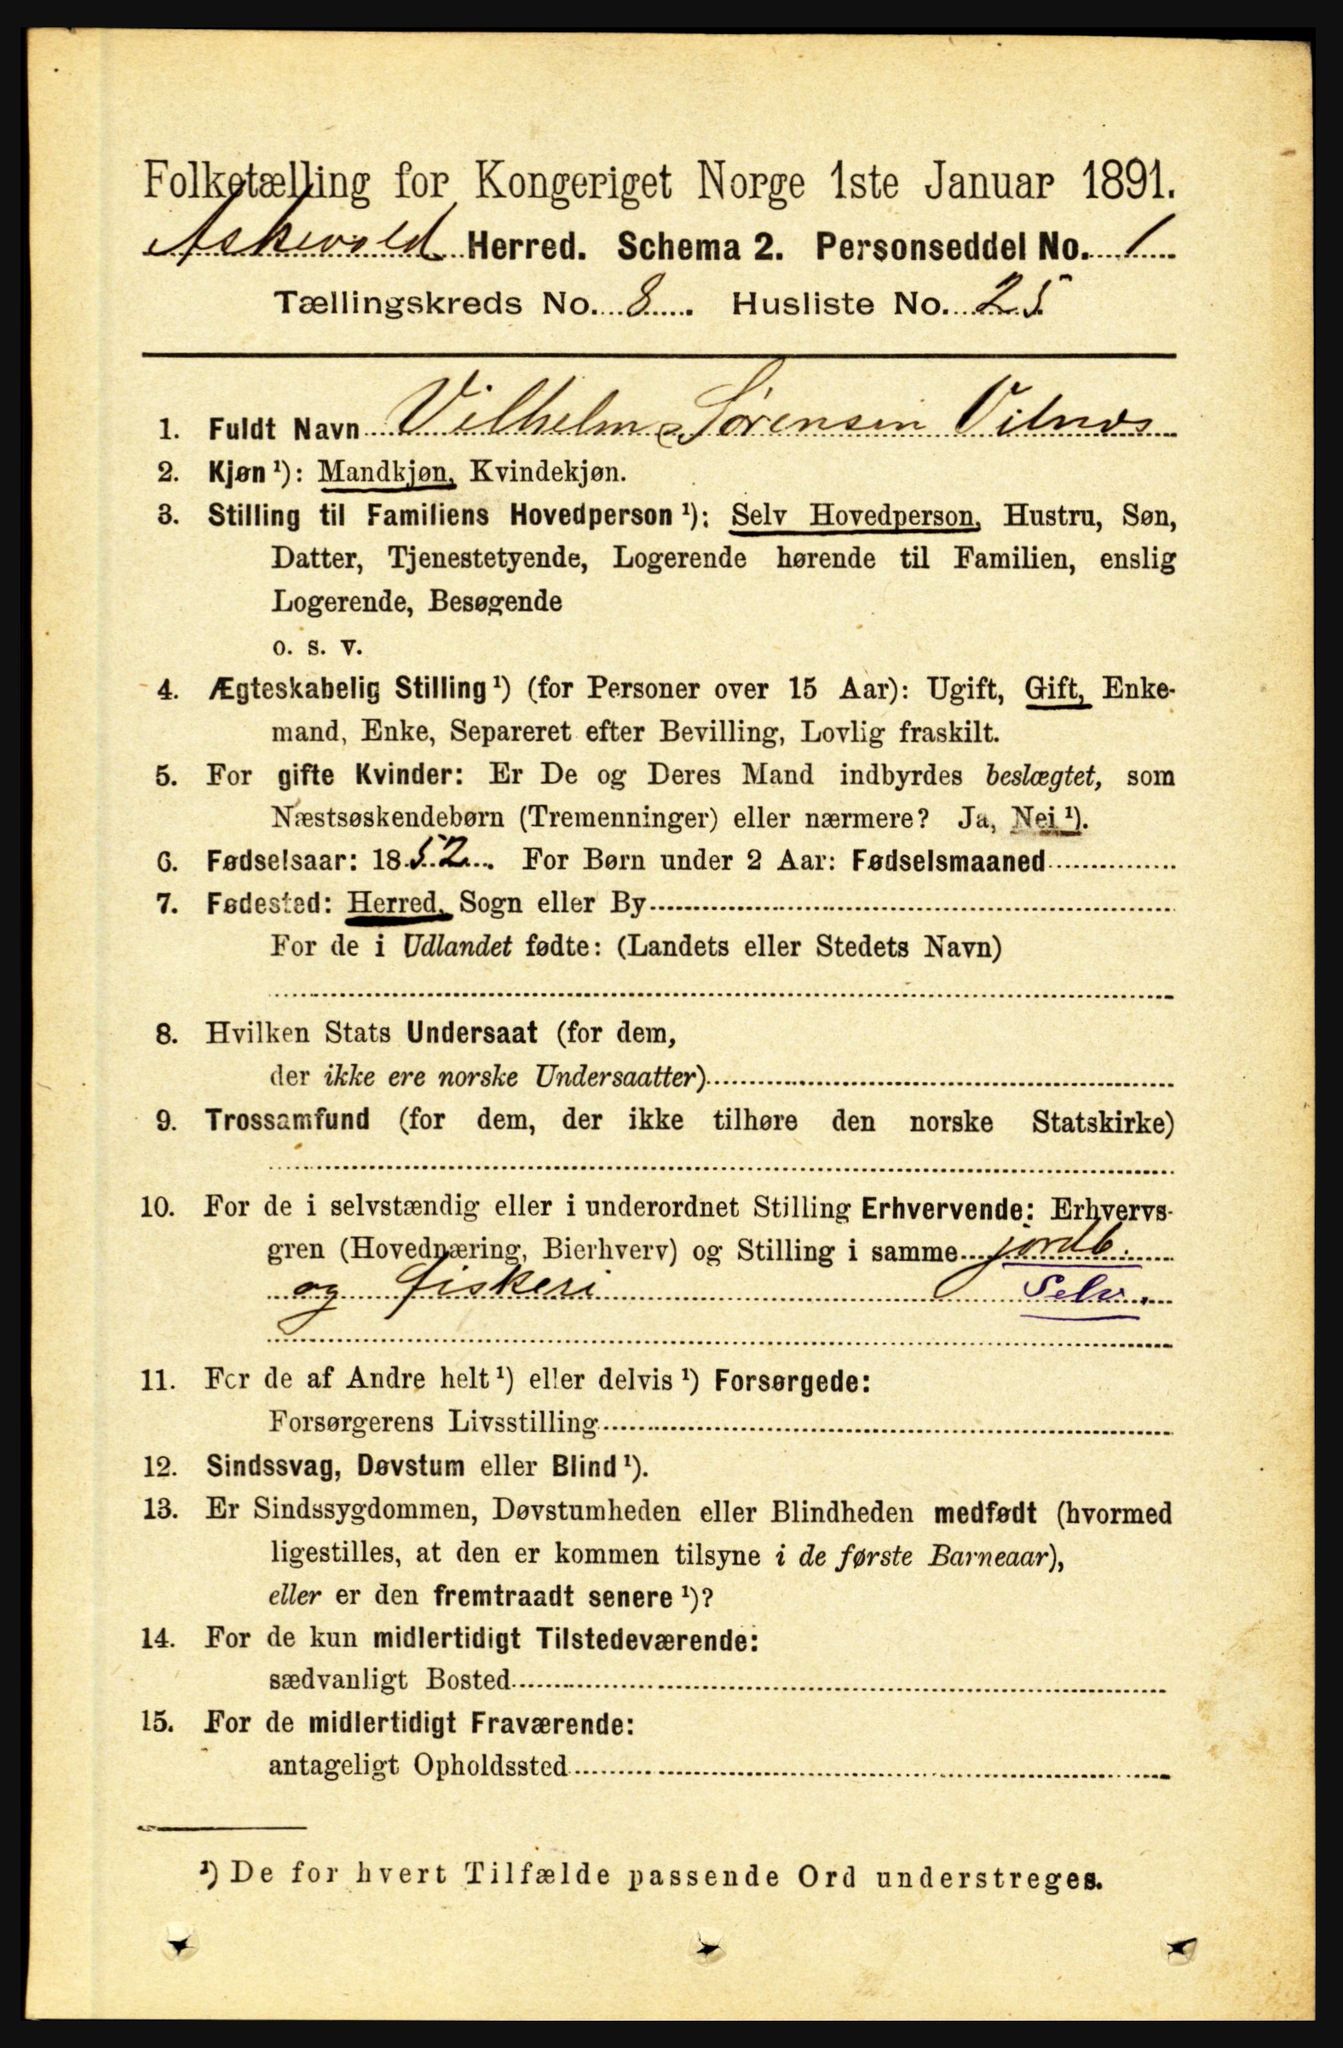 Folketælling for Kongeriget Norge 1ste Januar 1891.
Askevold Herred. Schema 2. Personseddel No. 1
Tællingskreds No. 8. Husliste No. 25
1. Fuldt Navn Vilhelm Sørensen Vilnes
2. Kjøn¹): Mandkjøn, Kvindekjøn.
3. Stilling til Familiens Hovedperson¹): Selv Hovedperson, Hustru, Søn,
Datter, Tjenestetyende, Logerende hørende til Familien, enslig
Logerende, Besøgende
o. s. v.
4. Ægteskabelig Stilling¹) (for Personer over 15 Aar): Ugift, Gift, Enke-
mand, Enke, Separeret efter Bevilling, Lovlig fraskilt.
5. For gifte Kvinder: Er De og Deres Mand indbyrdes beslægtet, som
Næstsøskendebørn (Tremenninger) eller nærmere? Ja, Nei¹).
6. Fødselsaar: 1852. For Børn under 2 Aar: Fødselsmaaned
7. Fødested: Herred, Sogn eller By
For de i Udlandet fødte: (Landets eller Stedets Navn)
8. Hvilken Stats Undersaat (for dem,
der ikke ere norske Undersaatter)
9. Trossamfund (for dem, der ikke tilhøre den norske Statskirke)
10. For de i selvstændig eller i underordnet Stilling Erhvervende: Erhvervs-
gren (Hovednæring, Bierhverv) og Stilling i samme jordb.
og fiskeri Selv.
11. For de af Andre helt¹) eller delvis¹) Forsørgede:
Forsørgerens Livsstilling
12. Sindssvag, Døvstum eller Blind¹).
13. Er Sindssygdommen, Døvstumheden eller Blindheden medfødt (hvormed
ligestilles, at den er kommen tilsyne i de første Barneaar),
eller er den fremtraadt senere¹)?
14. For de kun midlertidigt Tilstedeværende:
sædvanligt Bosted
15. For de midlertidigt Fraværende:
antageligt Opholdssted
¹) De for hvert Tilfælde passende Ord understreges.